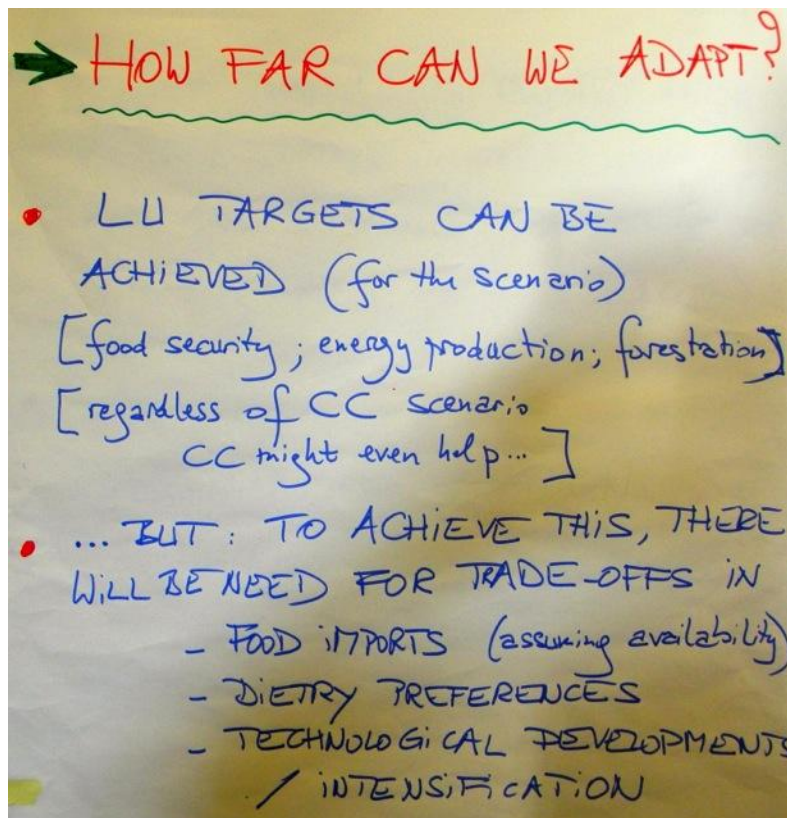 HOW FAR CAN WE ADAPT?
LU TARGETS CAN BE
ACHiEVED (for the scenario)
[food security; energy production; forestation]
[regardless of CC scenario
CC might even help...]
... BUT: TO ACHiEVE THiS, THERE
WiLL BE NEED FOR TRADE-OFFS iN
- FOOD iMPORTS (assuming availability)
- DiETRY PREFERENCES
- TECHNOLOGiCAL DEVELOPMENTS
/ iNTENSiFiCATiON